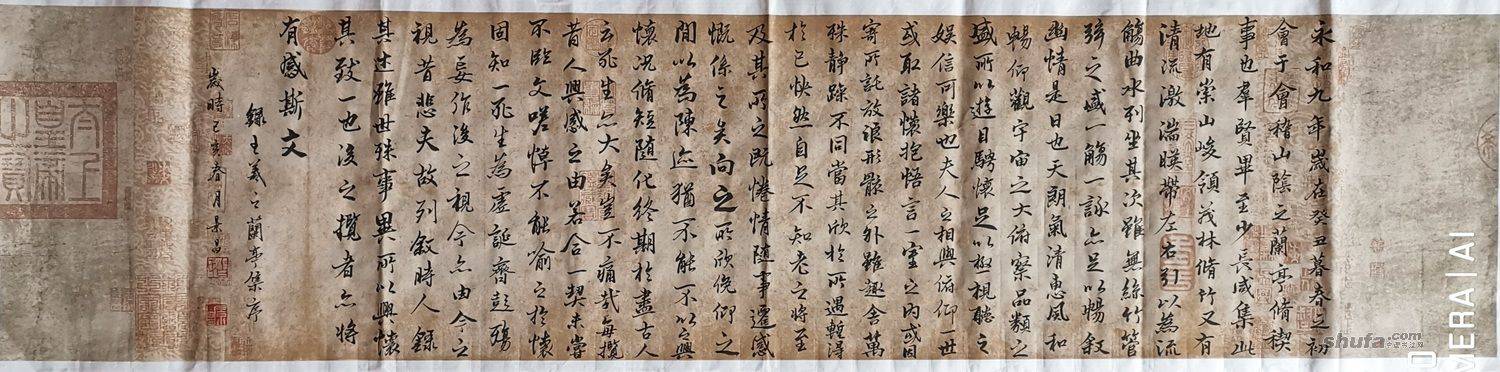 永和九年歲在癸丑暮春之初
會于會稽山陰之蘭亭脩禊
事也羣賢畢至少長咸集此
地有崇山峻領茂林脩竹又有
清流激湍暎帶左右引以為流
觴曲水列坐其次雖無絲竹管
絃之盛一觴一詠亦足以暢敘
幽情是日也天朗氣清惠風和
暢仰觀宇宙之大俯察品類之
盛所以遊目騁懷足以極視聽之
娛信可樂也夫人之相與俯仰一世
或取諸懷抱悟言一室之內或因
寄所託放浪形骸之外雖趣舍萬
殊靜躁不同當其欣於所遇暫得
於己快然自足不知老之將至
及其所之既惓情隨事遷感
慨係之矣向之所欣俛仰之
間以為陳迹猶不能不以之興
懷況脩短隨化終期於盡古人
云死生亦大矣豈不痛哉每攬
昔人興感之由若合一契未嘗
不臨文嗟悼不能喻之於懷
固知一死生為虛誕齊彭殤
為妄作後之視今亦由今之
視昔悲夫故列敘時人錄
其述雖世殊事異所以興懷
其致一也後之攬者亦將
有感斯文
錄王羲之蘭亭集序
歲時己亥春月景昌
太上皇帝之寶
shufa.com
MERA | AI